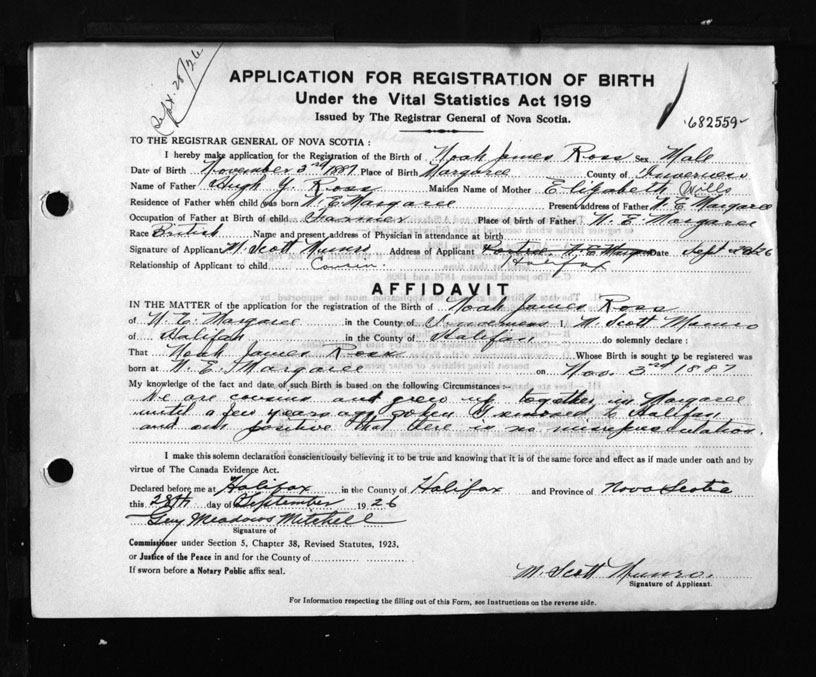 Sept. 28/26
APPLICATION FOR REGISTRATION OF BIRTH
Under the Vital Statistics Act 1919
Issued by The Registrar General of Nova Scotia.
682559
TO THE REGISTRAR GENERAL OF NOVA SCOTIA :
I hereby make application for the Registration of the Birth of Noah James Ross Sex Male
Date of Birth November 3rd 1887 Place of Birth Margaree County of Inverness
Name of Father Hugh Y. Ross Maiden Name of Mother Elizabeth Wills
Residence of Father when child was born N. E Margaree Present address of Father N. E Margaree
Occupation of Father at Birth of child Farmer Place of birth of Father N. E. Margaree
Race British Name and present address of Physician in attendance at birth
Signature of Applicant M. Scott Munro Address of Applicant Halifax Date Sept 28/26
Relationship of Applicant to child Cousin
AFFIDAVIT
IN THE MATTER of the application for the registration of Birth of Noah James Ross
of N. E. Margaree in the County of Inverness I, M. Scott Munro
of Halifax in the County of Halifax do solemnly declare :
That Noah James Ross Whose Birth is sought to be registered was
born at N. E. Margaree on Nov. 3rd 1887
My knowledge of the fact and date of such Birth is based on the following Circumstances :-
We are cousins and grew up together in Margaree
until a few years ago when I removed to Halifax
and am positive that there is no misrepresentation.
I make this solemn declaration conscientiously believing it to be true and knowing that it is of the same force and effect as if made under oath and by
virtue of The Canada Evidence Act.
Declared before me at Halifax in the County of Halifax and Province of Nova Scotia
this 28th day of September 1926
Guy Meadows Mitchell
Signature of
Commissioner under Section 5, Chapter 38, Revised Statutes, 1923,
or Justice of the Peace in and for the County of
If sworn before a Notary Public affix seal.
M. Scott Munro.
Signature of Applicant.
For Information respecting the filling out of this Form, see Instructions on the reverse side.